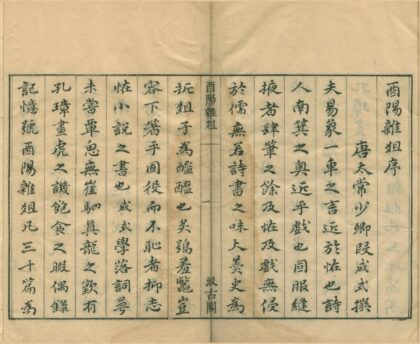 酉陽雜俎序
唐太常少卿段成式撰
夫易象一車之言近於恠也詩
人南箕之奧近乎戲也固服縫
掖者肆筆之餘及恠及戲無侵
於儒無若詩書之味大羹史為
酉陽雜俎
一
汲古閣
折俎子為醯醢也炙鴞羞鱉豈
容下箸乎固役而不恥者抑志
恠小說之書也成式學落詞曼
未嘗覃思無崔駰真龍之歎有
孔璋畫虎之譏飽食之暇偶錄
記憶號酉陽雜俎凡三十篇為